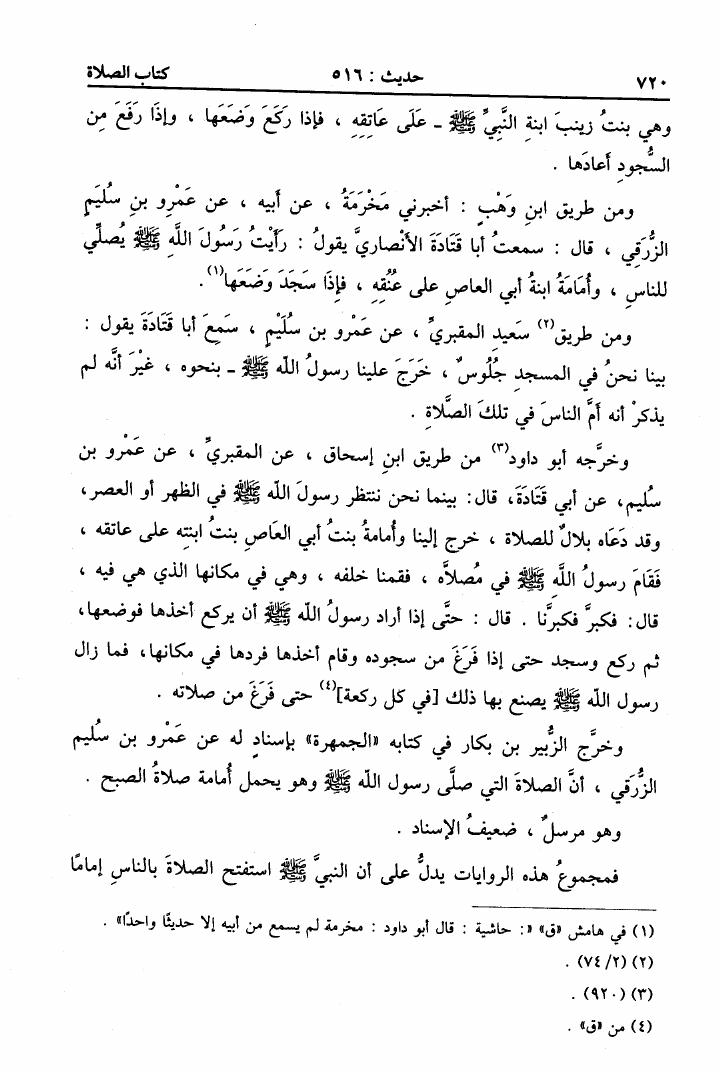 ٧٢٠ حديث : ٥١٦ كتاب الصلاة
وهي بنتُ زينبَ ابنةِ النَّبيِّ ﷺ ـ عَلَى عَاتِقِهِ ، فإذا رَكَعَ وَضَعَهَا ، وإذَا رَفَعَ مِن
السُّجودِ أعادَها .
ومن طريق ابنِ وَهْبٍ : أخبرني مَخْرَمَةُ ، عن أبيه ، عن عَمْرِو بنِ سُليَمٍ
الزُّرَقِي ، قال : سمعتُ أبا قَتَادَةَ الأنْصاريَّ يقولُ : رَأيْتُ رَسُولَ اللَّهِ ﷺ يُصلِّي
للناسِ ، وأُمَامَةُ ابنةُ أبي العاصِ على عُنُقِهِ ، فإِذَا سَجَدَ وَضَعَهَا(١).
ومن طريق(٢) سَعِيد المقبريِّ ، عن عَمْرِو بن سُلَيْمٍ ، سَمِعَ أبا قَتَادَةَ يقول :
بينا نحنُ في المسجدِ جُلُوسٌ ، خَرَجَ علينا رسولُ اللّه ﷺ ـ بنحوه ، غيْرَ أنَّه لم
يذكرْ أنه أمَّ الناسَ في تلكَ الصَّلاةِ .
وخرَّجه أبو داود(٣) من طريق ابنِ إسحاق ، عن المقبريِّ ، عن عَمْرِو بن
سُليم، عن أبي قَتَادَةَ، قال: بينما نحن ننتظر رسولَ الله ﷺ في الظهر أو العصر،
وقد دَعَاه بلالٌ للصلاة ، خرج إلينا وأُمامةُ بنتُ أبي العَاصِ بنتُ ابنتِه على عاتقه ،
فَقَامَ رسولُ اللَّهِ ﷺ في مُصلاَّه ، فقمنا خلفه ، وهي في مكانها الذي هي فيه ،
قال: فكبرَّ فكبرَّنا . قال : حتَّى إذا أراد رسولُ اللّه ﷺ أن يركع أخذها فوضعها،
ثم ركع وسجد حتى إذا فَرَغَ من سجوده وقام أخذها فردها في مكانها، فما زال
رسول اللّه ﷺ يصنع بها ذلك [في كل ركعة](٤) حتى فَرَغَ من صلاته .
وخرَّج الزُّبير بن بكار في كتابه «الجمهرة» بإسنادٍ له عن عَمْرو بن سُليم
الزُّرَقي ، أنَّ الصلاةَ التي صلَّى رسول اللّه ﷺ وهو يحمل أُمامة صلاةُ الصبح .
وهو مرسلٌ ، ضعيفُ الإسناد .
فمجموعُ هذه الروايات يدلُّ على أن النبيَّ ﷺ استفتح الصلاةَ بالناسِ إمامًا
(١) في هامش «ق» «: حاشية : قال أبو داود : مخرمة لم يسمع من أبيه إلا حديثًا واحدًا» .
(٢) (٢/ ٧٤) .
(٣) (٩٢٠) .
(٤) من «ق» .